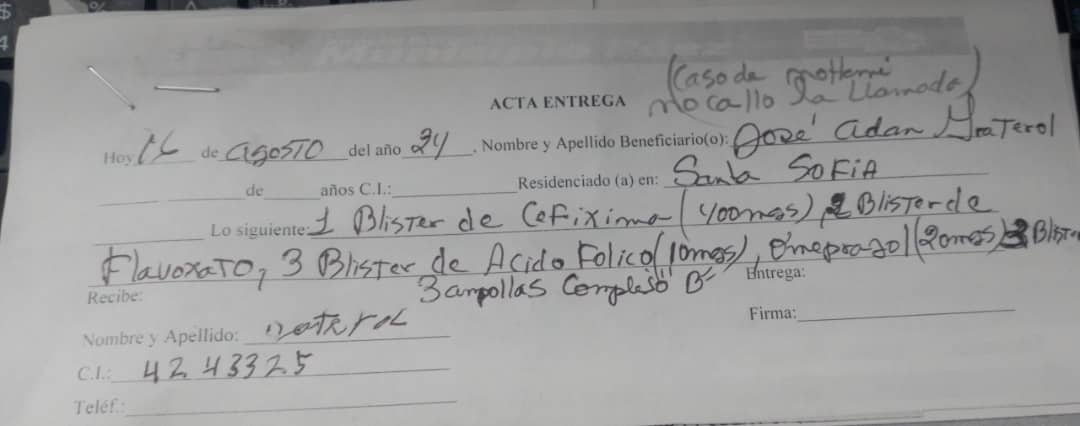 (Caso de
no callo la llamada)
ACTA ENTREGA
Hoy 16 de agosto del año 24. Nombre y Apellido Beneficiario(o): José Adan Graterol
de años C.I.: Residenciado (a) en: Santa SoFiA
Lo siguiente: 1 Blister de Cefixima (400mgs), 2 Blister de
Flavoxato, 3 Blister de Acido Folico (10mgs), Omeprazol (20mgs) 3 Blister
3 ampollas Complejo B
Recibe: Entrega:
Nombre y Apellido: Firma:
C.I.: 4243325
Teléf.: